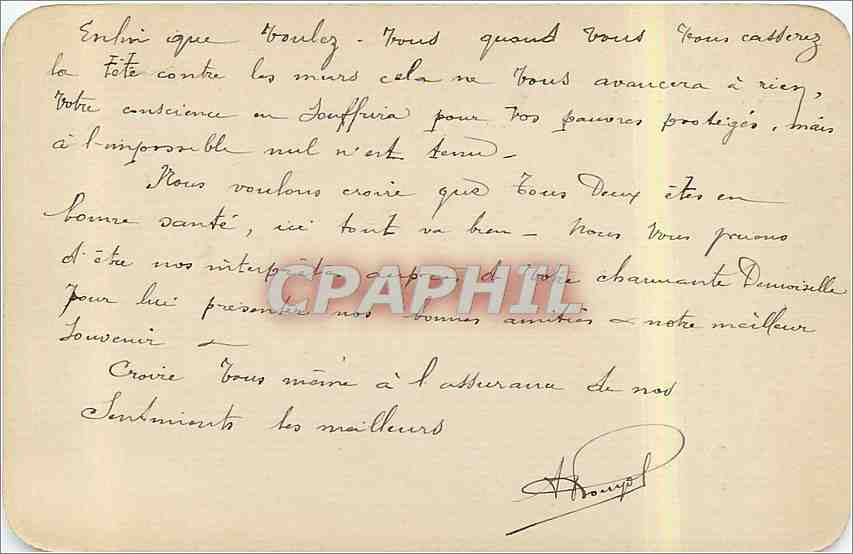 Enfin que voulez-vous quand vous vous casserez
la tête contre les murs cela ne vous avancera à rien,
votre conscience en souffrira pour vos pauvres protégés, mais
à l'impossible nul n'est tenu -
Nous voulons croire que tous deux êtes en
bonne santé, ici tout va bien - Nous vous prions
d'être nos interprètes auprès d votre charmante Demoiselle
CPAPHIL
pour lui présenter nos bonnes amitiés & notre meilleur
souvenir -
Croire vous même à l'assurance de nos
sentiments les meilleurs